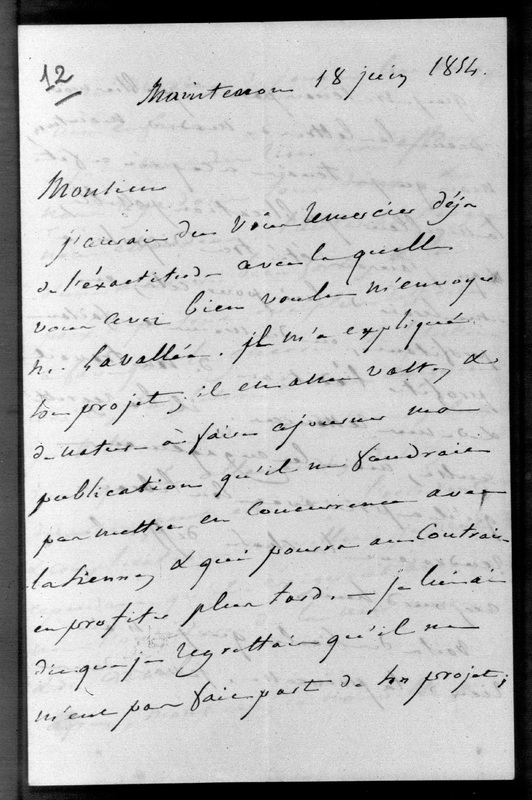 12
Maintenon 18 juin 1854.
Monsieur
j'aurais du vous remercier déja
de l'éxactitude avec laquelle
vous avez bien voulu m'envoyer
M. Lavallée. il m'a expliqué
son projet; il est assez vaste, &
de nature à faire ajourner ma
publication qu'il ne faudrait
pas mettre en concurrence avec
la sienne, & qui pourra au contraire
en profiter plus tard. — je lui ai
dit que je regrettais qu'il ne
m'eut pas fait part de son projet;